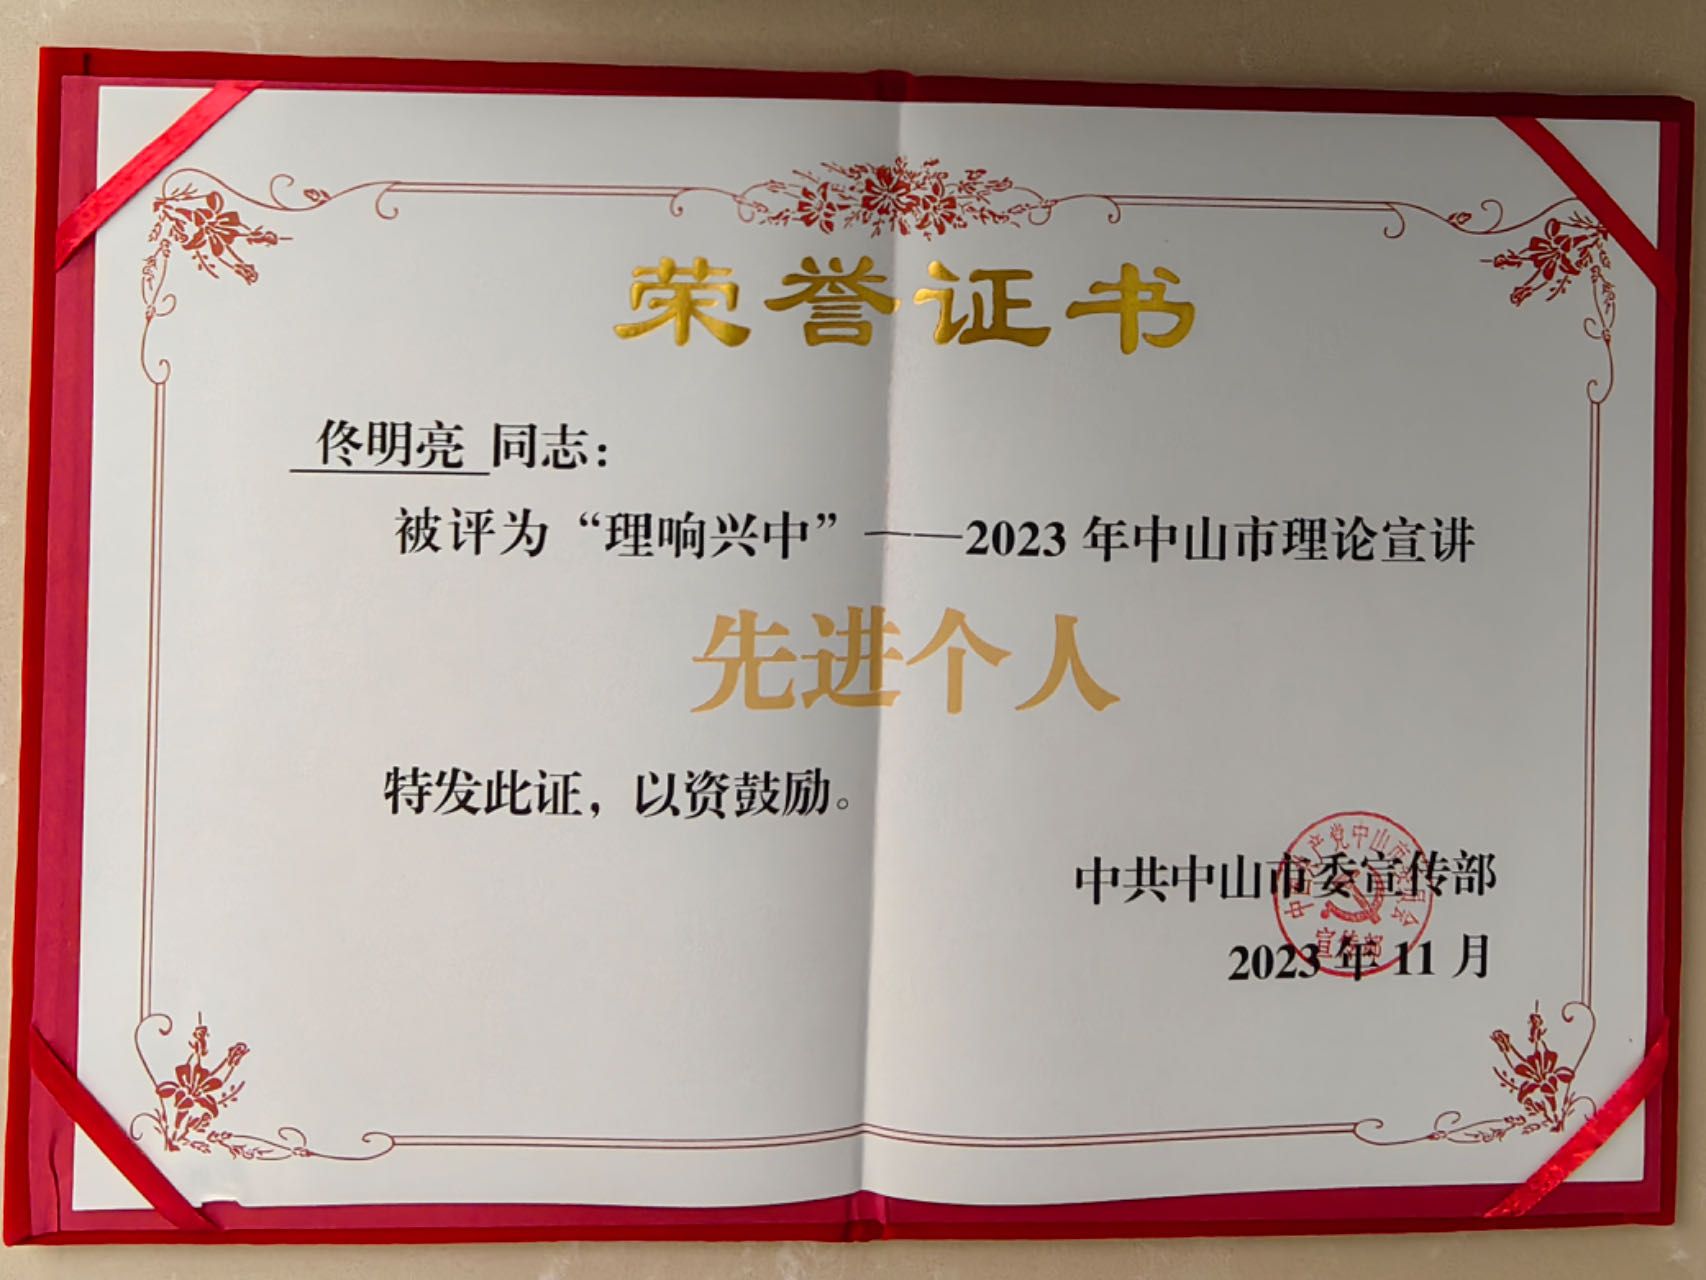 荣誉证书
佟明亮 同志：
被评为“理响兴中”——2023年中山市理论宣讲
先进个人
特发此证，以资鼓励。
中共中山市委宣传部
2023年11月
中国共产党中山市委员会
宣传部